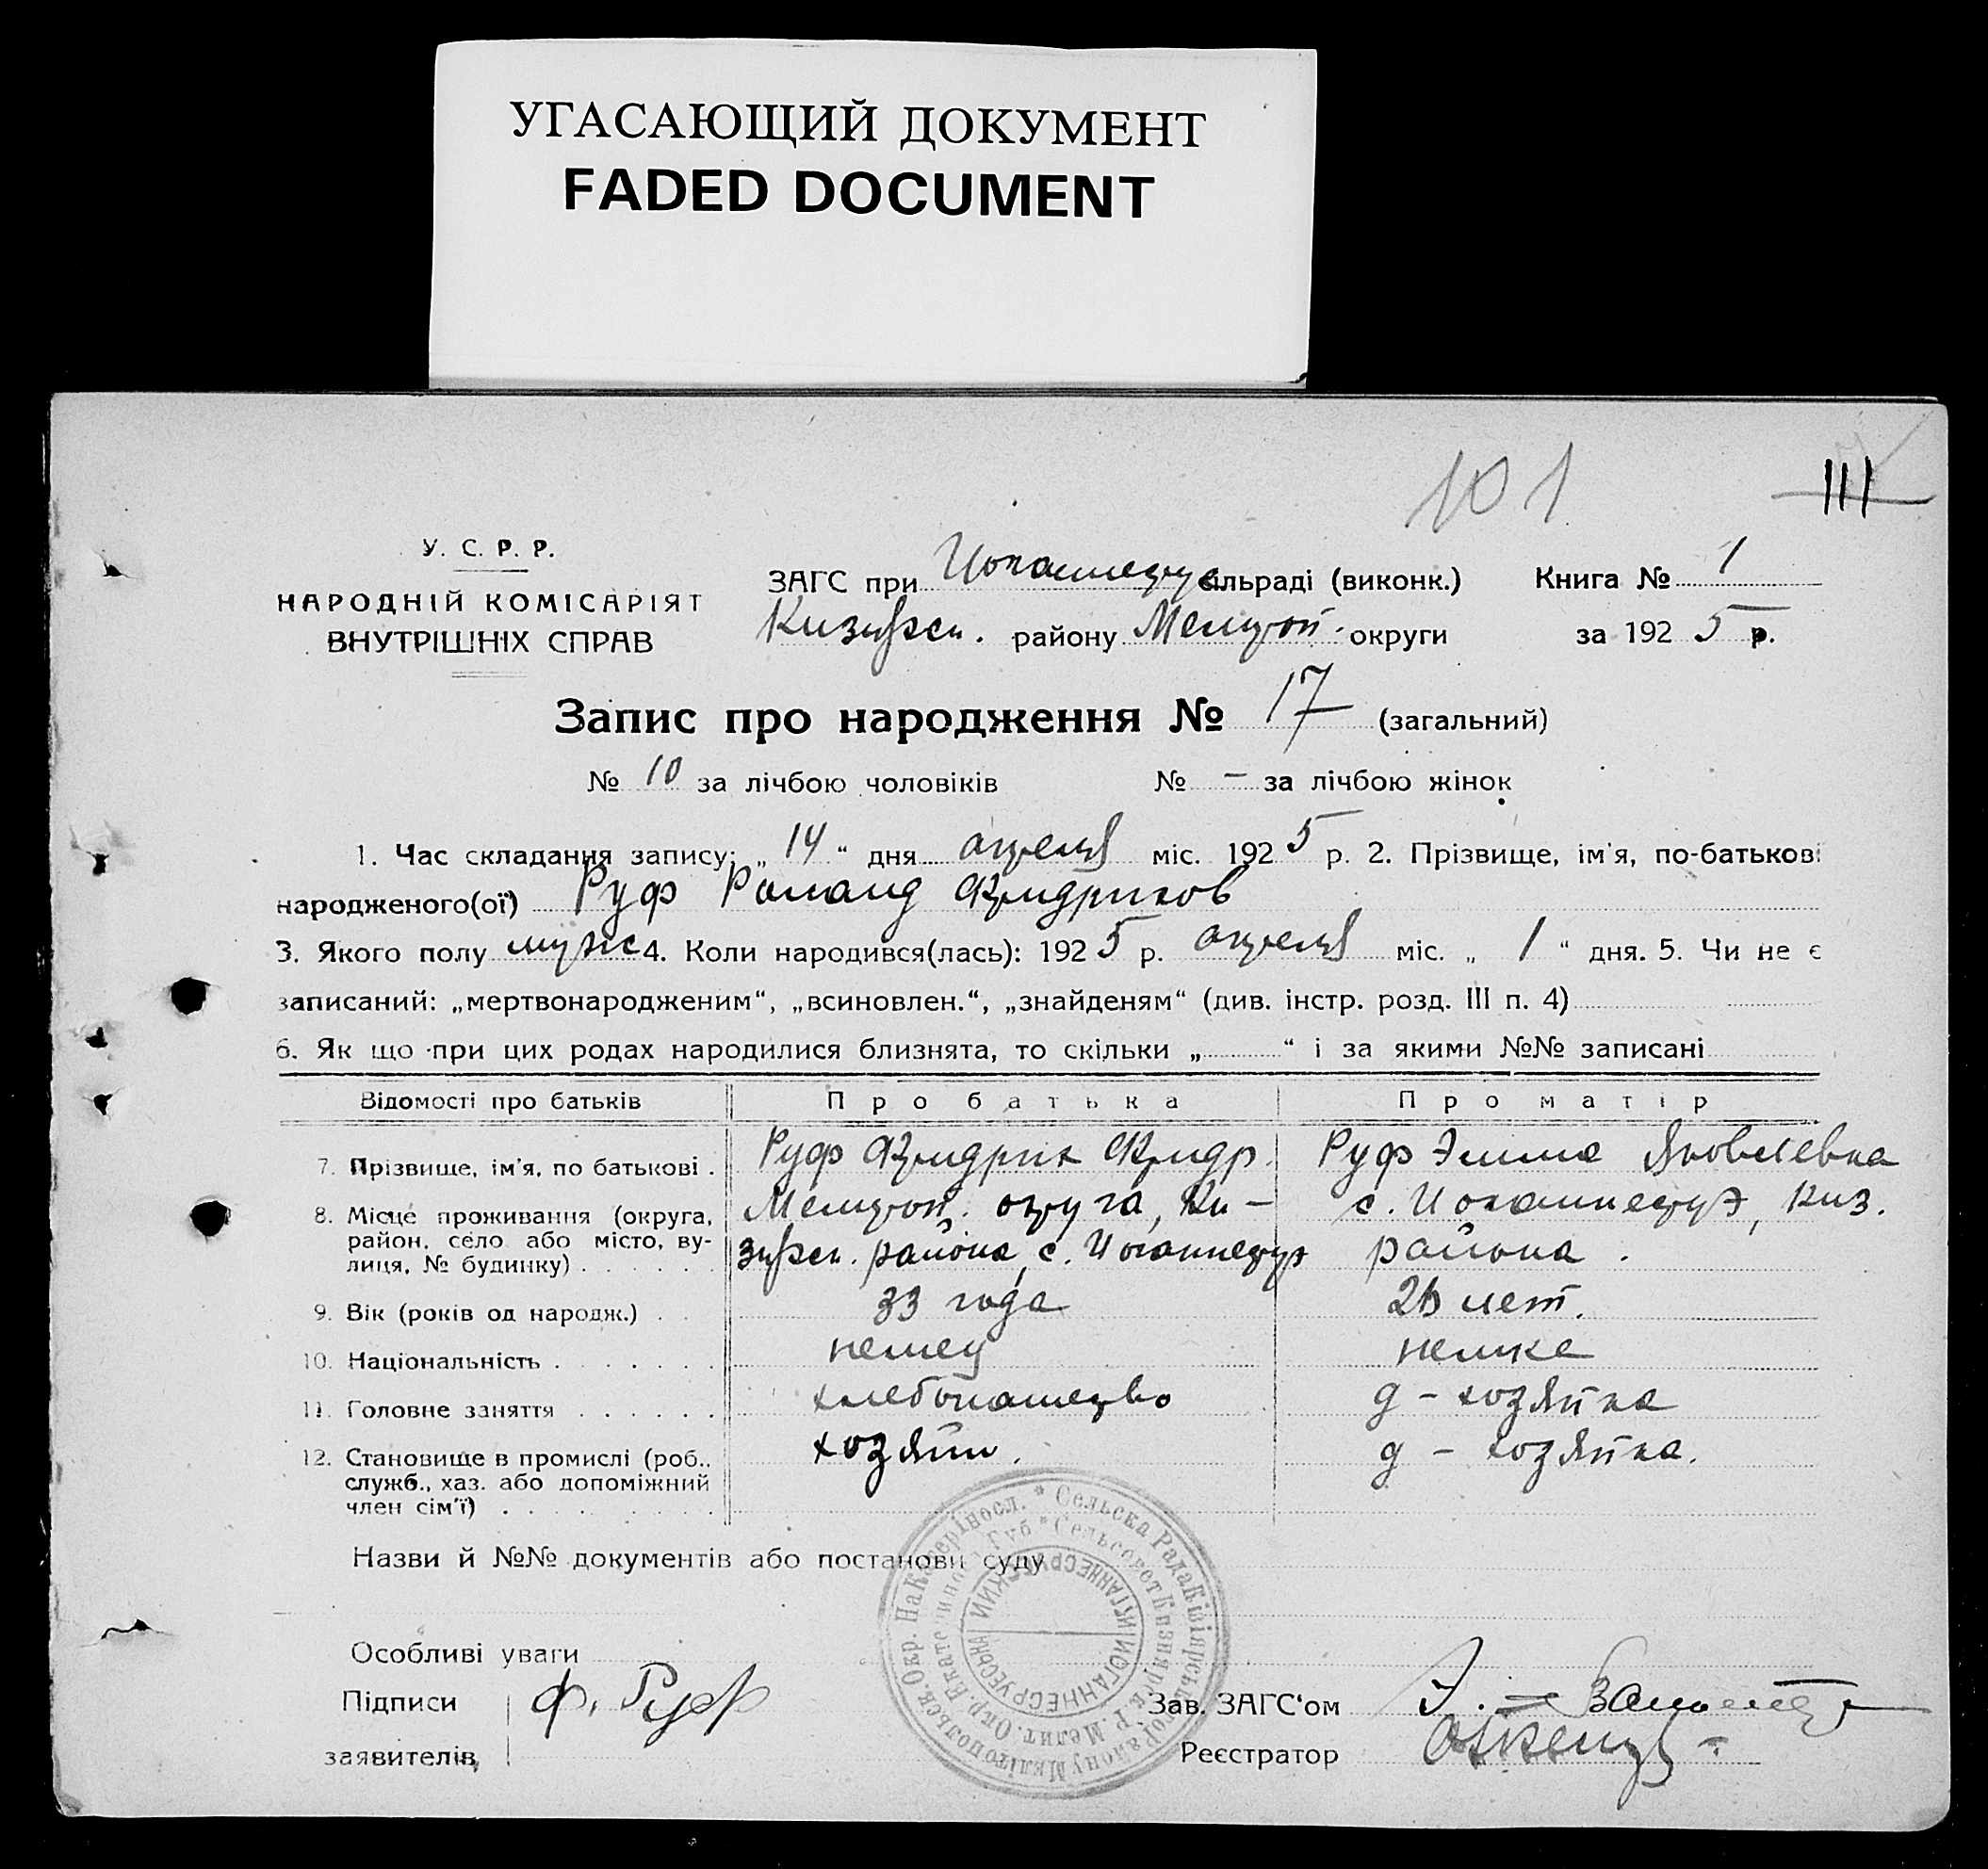 УГАСАЮЩИЙ ДОКУМЕНТ
FADED DOCUMENT
101
111
У. С. Р. Р.
НАРОДНІЙ КОМІСАРІЯТ
ВНУТРІШНІХ СПРАВ
ЗАГС при сільраді (виконк.) Книга № 1
району Мелитоп. округи за 1925 р.
Запис про народження № 17 (загальний)
№ 10 за лічбою чоловіків № – за лічбою жінок
1. Час складання запису: „ 14 “ дня апреля міс. 1925 р. 2. Прізвище, ім'я, по-батькові
народженого(ої) Руф Роланд Фридрихов
3. Якого полу муж 4. Коли народився(лась): 1925 р. апреля міс. „ 1 “ дня. 5. Чи не є
записаний: „мертвонародженим“, „всиновлен.“, „знайденям“ (див. інстр. розд. III п. 4)
6. Як що при цих родах народилися близнята, то скільки „ “ і за якими №№ записані
Відомості про батьків Про батька Про матір
7. Прізвище, ім'я, по батькові . Руф Фридрих Фридр. Руф Эмма Яковлевна
8. Місце проживання (округа, Мелитоп. округа, Ки- с. Иоханнесру, Киз.
район, село або місто, ву- зиярск. района, с. Иоганнесру района .
лиця, № будинку)
9. Вік (років од народж.) 33 года лет.
10. Національність немец немка
11. Головне заняття хлебопашество д – хозяйка
12. Становище в промислі (роб., хозяин. д – хозяйка.
служб., хаз. або допоміжний
член сім'ї)
Назви й №№ документів або постанови суду
Особливі уваги
Підписи Ф. Руф Зав. ЗАГС'ом
заявителів, Реєстратор
ИОГАННЕСРУЕСЬКА ИОГАННЕСРУЕСКИЙ